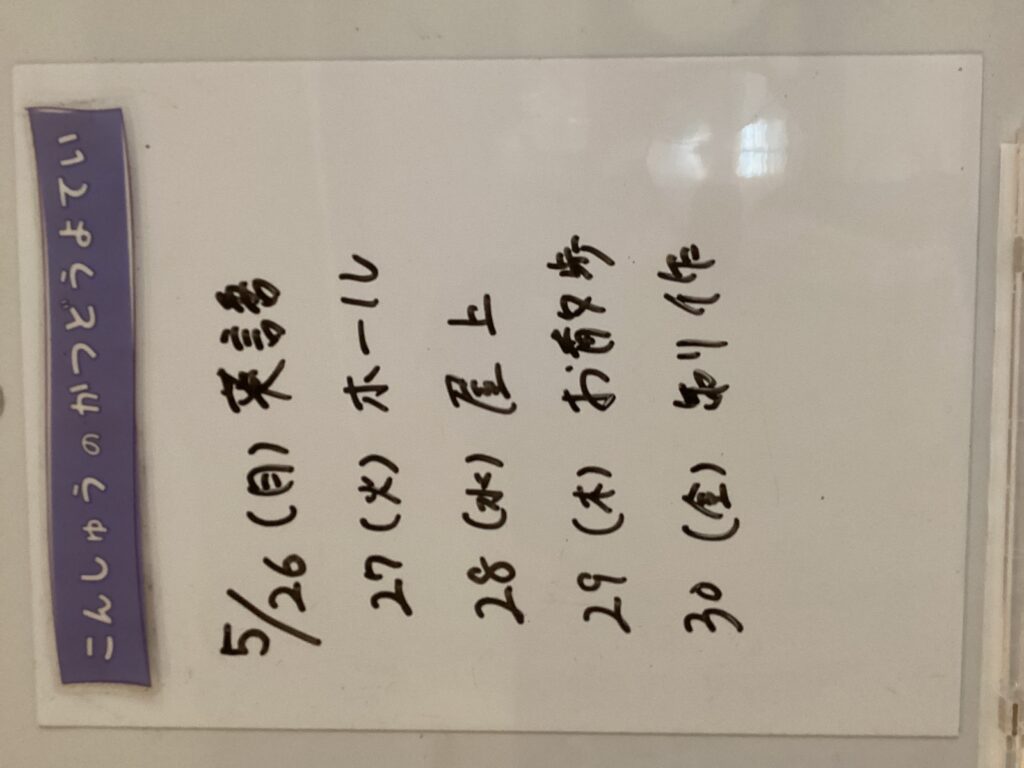 こんしゅうのかつどうよてい
5/26(月) 英語
27(火) ホール
28(水) 屋上
29(木) お散歩
30(金) 制作